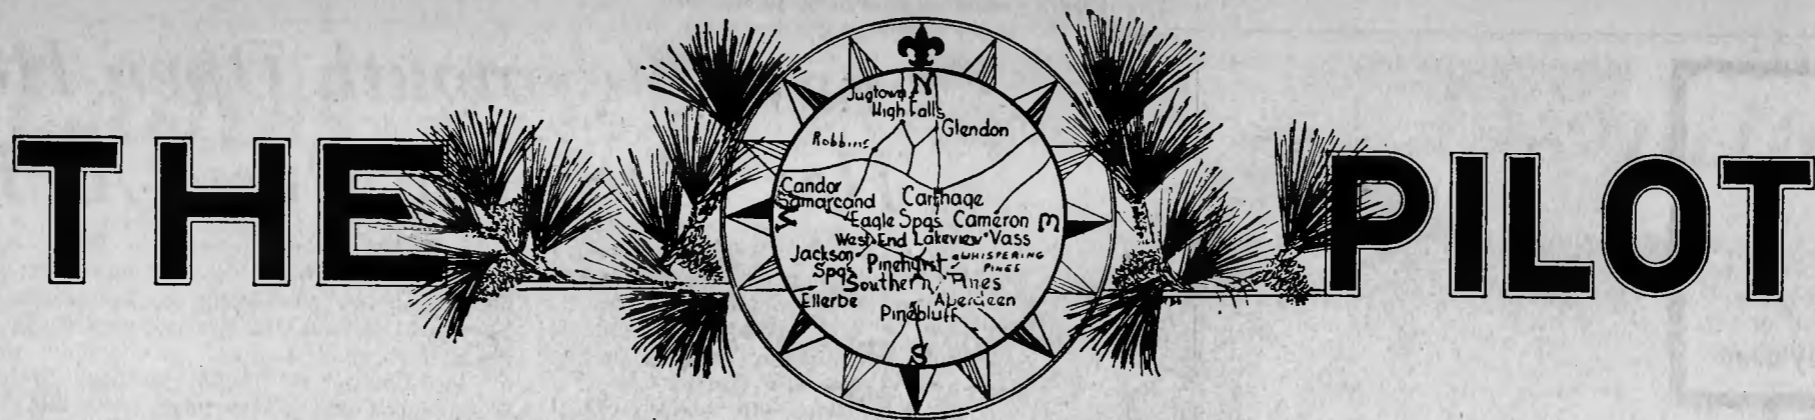 THE PILOT
N
Jugtown
High Falls
Glendon
Robbins
Candor
Samarcand
Carthage
W
Eagle Spgs. Cameron E
West End Lakeview Vass
Jackson Spgs
Pinehurst
WHISPERING PINES
Southern Pines
Ellerbe
Aberdeen
Pinebluff
S